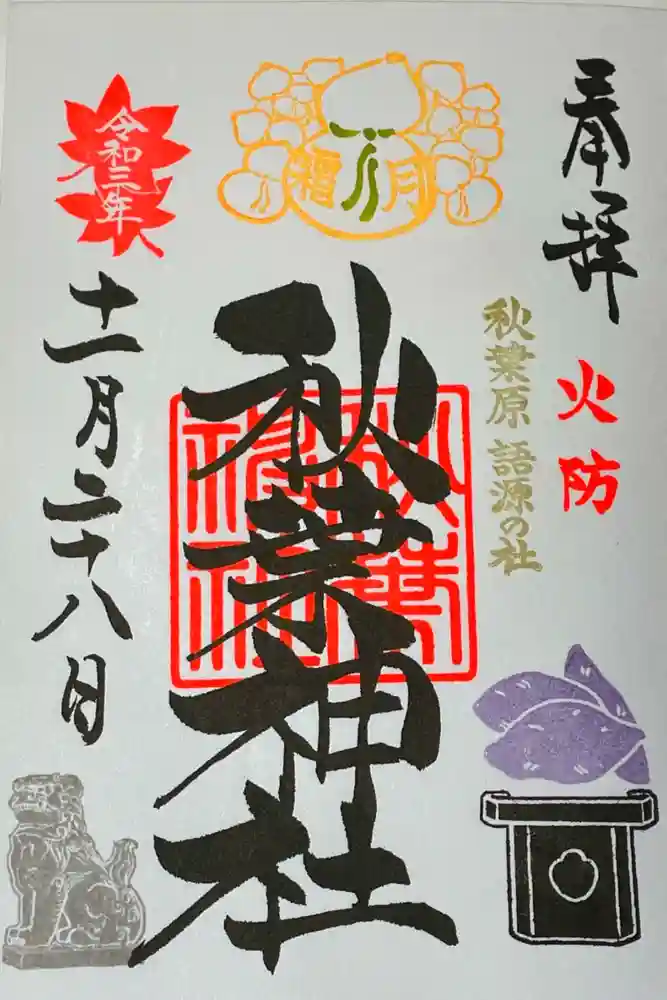 奉拝
火防
秋葉原 語源の社
霜月
秋葉神社
秋葉
神社
令和三年
十一月二十八日